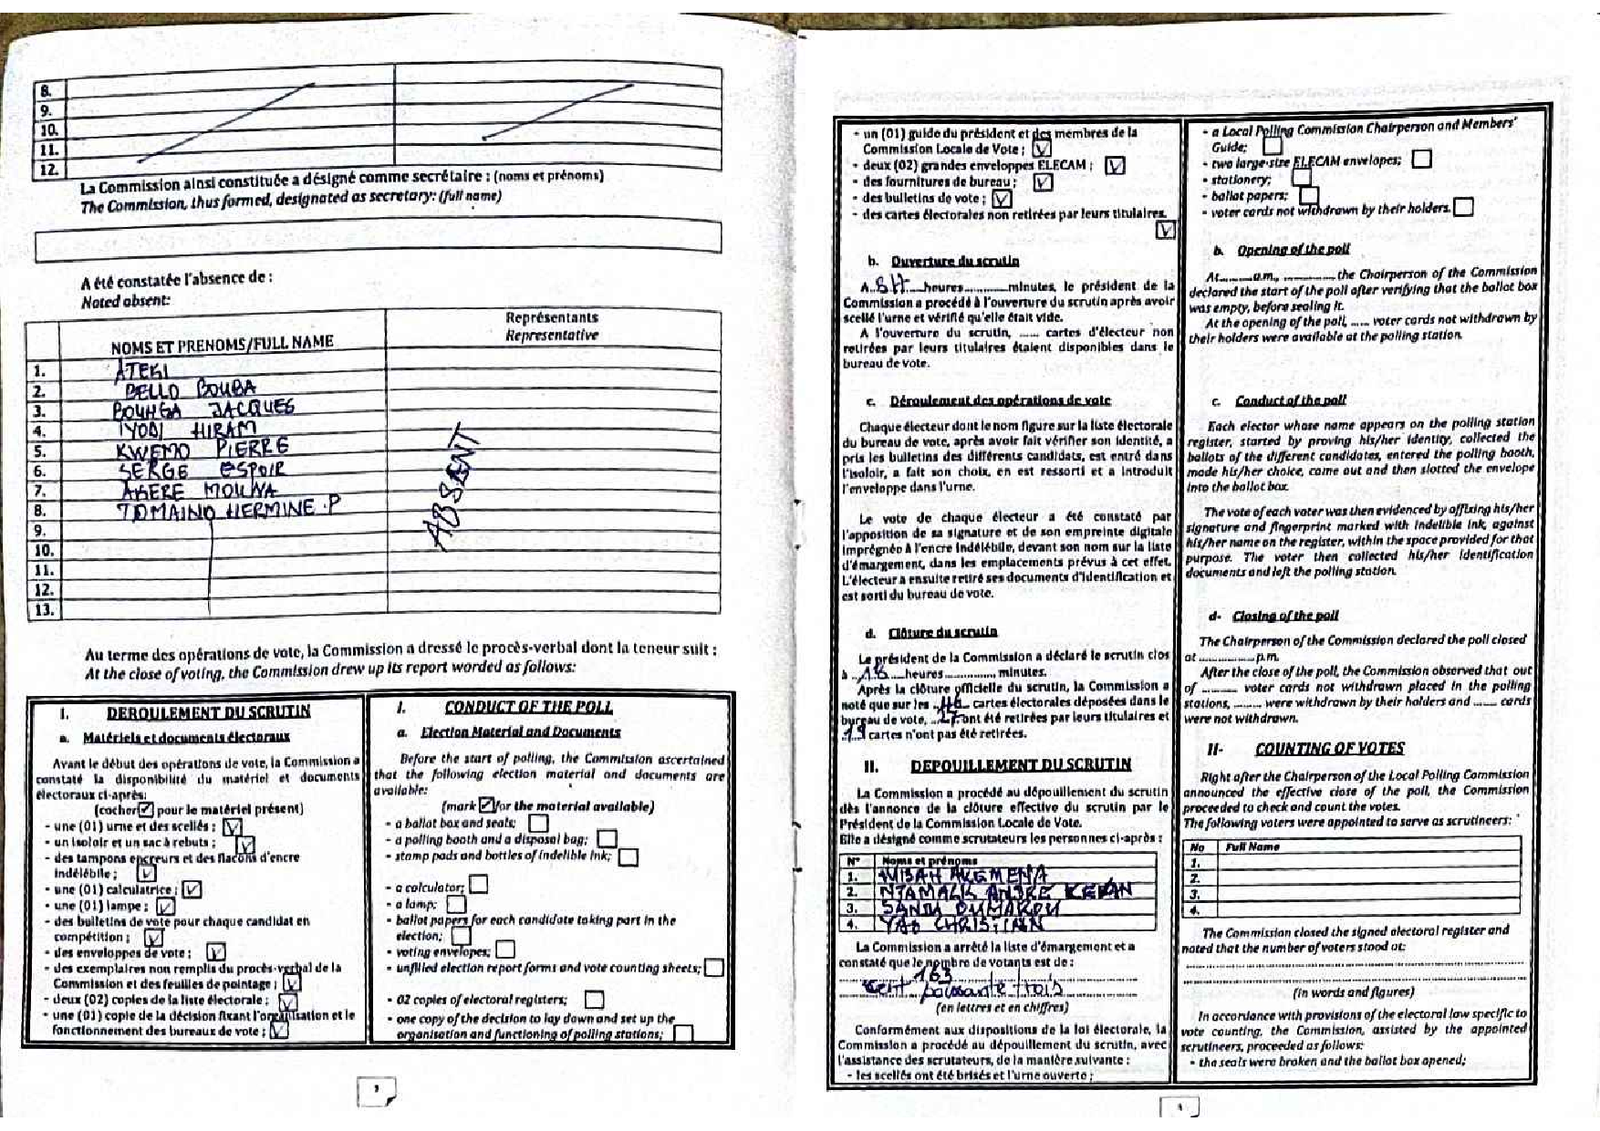 8.
9.
10.
11.
12.
La Commission ainsi constituée a désigné comme secrétaire : (noms et prénoms)
The Commission, thus formed, designated as secretary: (full name)
A été constatée l'absence de :
Noted absent:
NOMS ET PRENOMS/FULL NAME
Représentants
Representative
1. ATEKI
2. BELLO BOUBA
3. BOUHGA JACQUES
4. IYODI HIRAM
5. KWEMO PIERRE
6. SERGE ESPOIR
7. AKERE MOUNA
8. TOMAINO HERMINE.P
9.
10.
11.
12.
13.
ABSENT
Au terme des opérations de vote, la Commission a dressé le procès-verbal dont la teneur suit :
At the close of voting, the Commission drew up its report worded as follows:
I. DEROULEMENT DU SCRUTIN
a. Matériels et documents électoraux
Avant le début des opérations de vote, la Commission a
constaté la disponibilité du matériel et documents
électoraux ci-après:
(cocher ☑ pour le matériel présent)
- une (01) urne et des scellés ; ☑
- un isoloir et un sac à rebuts ; ☑
- des tampons encreurs et des flacons d'encre
indélébile ; ☑
- une (01) calculatrice ; ☑
- une (01) lampe ; ☑
- des bulletins de vote pour chaque candidat en
compétition ; ☑
- des enveloppes de vote ; ☑
- des exemplaires non remplis du procès-verbal de la
Commission et des feuilles de pointage ; ☑
- deux (02) copies de la liste électorale ; ☑
- une (01) copie de la décision fixant l'organisation et le
fonctionnement des bureaux de vote ; ☑
I. CONDUCT OF THE POLL
a. Election Material and Documents
Before the start of polling, the Commission ascertained
that the following election material and documents are
available:
(mark ☑ for the material available)
- a ballot box and seals; ☐
- a polling booth and a disposal bag; ☐
- stamp pads and bottles of indelible ink; ☐
- a calculator; ☐
- a lamp; ☐
- ballot papers for each candidate taking part in the
election; ☐
- voting envelopes; ☐
- unfilled election report forms and vote counting sheets; ☐
- 02 copies of electoral registers; ☐
- one copy of the decision to lay down and set up the
organisation and functioning of polling stations; ☐
3
- un (01) guide du président et des membres de la
Commission Locale de Vote ; ☑
- deux (02) grandes enveloppes ELECAM ; ☑
- des fournitures de bureau ; ☑
- des bulletins de vote ; ☑
- des cartes électorales non retirées par leurs titulaires. ☑
b. Ouverture du scrutin
A 8H heures............minutes, le président de la
Commission a procédé à l'ouverture du scrutin après avoir
scellé l'urne et vérifié qu'elle était vide.
A l'ouverture du scrutin, ...... cartes d'électeur non
retirées par leurs titulaires étaient disponibles dans le
bureau de vote.
c. Déroulement des opérations de vote
Chaque électeur dont le nom figure sur la liste électorale
du bureau de vote, après avoir fait vérifier son identité, a
pris les bulletins des différents candidats, est entré dans
l'isoloir, a fait son choix, en est ressorti et a introduit
l'enveloppe dans l'urne.
Le vote de chaque électeur a été constaté par
l'apposition de sa signature et de son empreinte digitale
imprégnée à l'encre indélébile, devant son nom sur la liste
d'émargement, dans les emplacements prévus à cet effet.
L'électeur a ensuite retiré ses documents d'identification et
est sorti du bureau de vote.
d. Clôture du scrutin
Le président de la Commission a déclaré le scrutin clos
à 18 heures.............. minutes.
Après la clôture officielle du scrutin, la Commission a
noté que sur les 46 cartes électorales déposées dans le
bureau de vote, 27 ont été retirées par leurs titulaires et
19 cartes n'ont pas été retirées.
II. DEPOUILLEMENT DU SCRUTIN
La Commission a procédé au dépouillement du scrutin
dès l'annonce de la clôture effective du scrutin par le
Président de la Commission Locale de Vote.
Elle a désigné comme scrutateurs les personnes ci-après :
N° Noms et prénoms
1. AKEMENA
2. NTAMALK ANDRE
3. OUMAROU
4. YAO CHRISTIAN
La Commission a arrêté la liste d'émargement et a
constaté que le nombre de votants est de :
163
cent soixante trois
(en lettres et en chiffres)
Conformément aux dispositions de la loi électorale, la
Commission a procédé au dépouillement du scrutin, avec
l'assistance des scrutateurs, de la manière suivante :
- les scellés ont été brisés et l'urne ouverte ;
- a Local Polling Commission Chairperson and Members'
Guide; ☐
- two large-size ELECAM envelopes; ☐
- stationery; ☐
- ballot papers; ☐
- voter cards not withdrawn by their holders. ☐
b. Opening of the poll
At........a.m, ..............the Chairperson of the Commission
declared the start of the poll after verifying that the ballot box
was empty, before sealing it.
At the opening of the poll, ...... voter cards not withdrawn by
their holders were available at the polling station.
c. Conduct of the poll
Each elector whose name appears on the polling station
register, started by proving his/her identity, collected the
ballots of the different candidates, entered the polling booth,
made his/her choice, came out and then slotted the envelope
into the ballot box.
The vote of each voter was then evidenced by affixing his/her
signature and fingerprint marked with indelible ink, against
his/her name on the register, within the space provided for that
purpose. The voter then collected his/her identification
documents and left the polling station.
d- Closing of the poll
The Chairperson of the Commission declared the poll closed
at .................. p.m.
After the close of the poll, the Commission observed that out
of .......... voter cards not withdrawn placed in the polling
stations, ......... were withdrawn by their holders and ....... cards
were not withdrawn.
II- COUNTING OF VOTES
Right after the Chairperson of the Local Polling Commission
announced the effective close of the poll, the Commission
proceeded to check and count the votes.
The following voters were appointed to serve as scrutineers:
No Full Name
1.
2.
3.
4.
The Commission closed the signed electoral register and
noted that the number of voters stood at:
(in words and figures)
In accordance with provisions of the electoral law specific to
vote counting, the Commission, assisted by the appointed
scrutineers, proceeded as follows:
- the seals were broken and the ballot box opened;
4